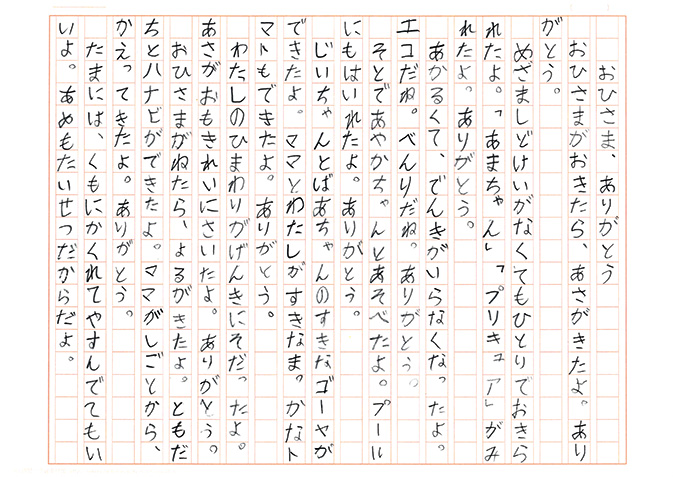 おひさま、ありがとう
おひさまがおきたら、あさがきたよ。あり
がとう。
めざましどけいがなくてもひとりでおきら
れたよ。「あまちゃん」「プリキュア」がみ
れたよ。ありがとう。
あかるくて、でんきがいらなくなったよ。
エコだね。べんりだね。ありがとう。
そとであやかちゃんとあそべたよ。プール
にもはいれたよ。ありがとう。
じいちゃんとばあちゃんのすきなゴーヤが
できたよ。ママとわたしがすきなま。かなト
マトもできたよ。ありがとう。
わたしのひまわりがげんきにそだったよ。
あさがおもきれいにさいたよ。ありがとう。
おひさまがねたら、よるがきたよ。ともだ
ちとハナビができたよ。ママがしごとから、
かえってきたよ。ありがとう。
たまには、くもにかくれてやすんでてもい
いよ。あめもたいせつだからだよ。